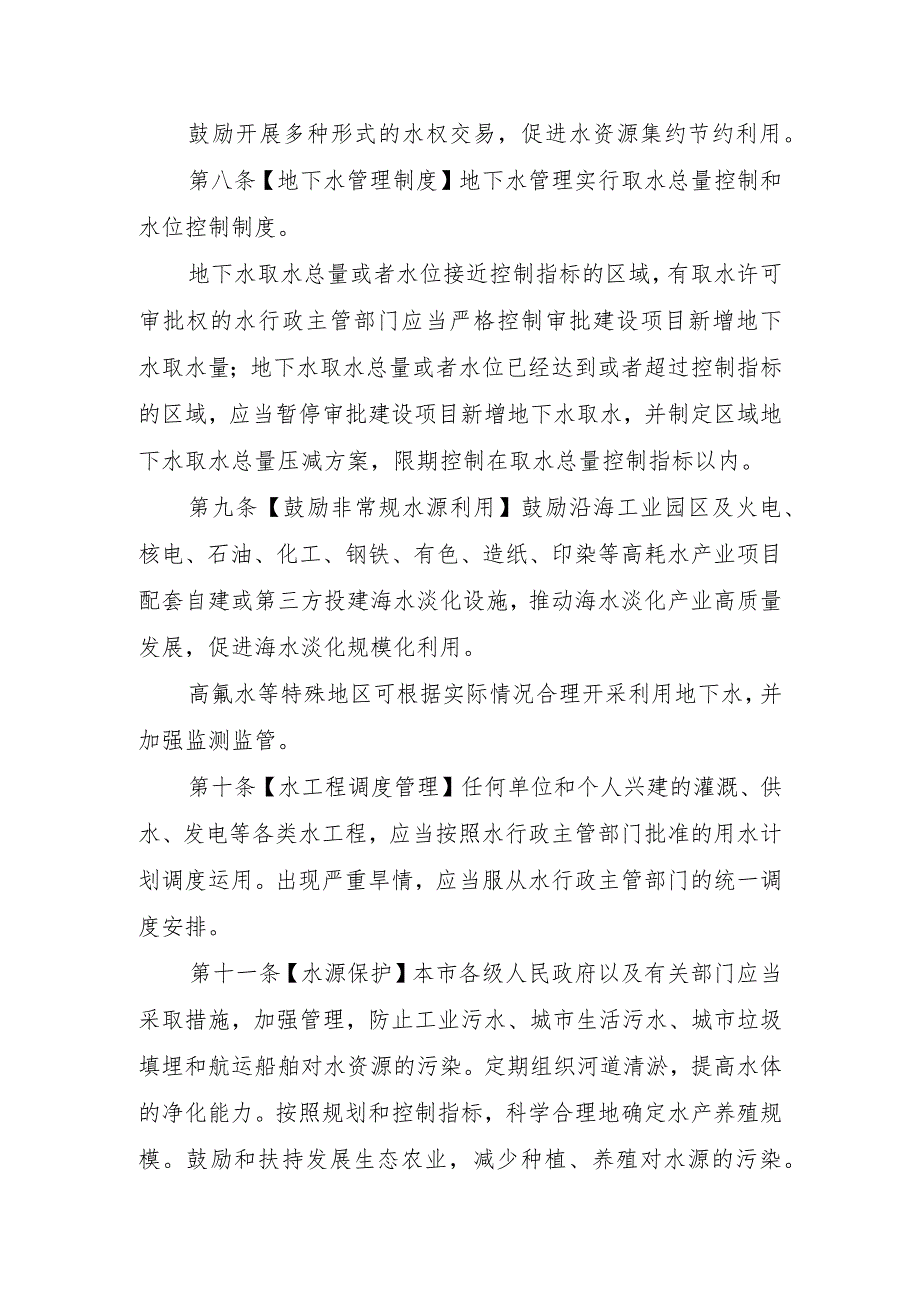 鼓励开展多种形式的水权交易，促进水资源集约节约利用。
第八条【地下水管理制度】地下水管理实行取水总量控制和
水位控制制度。
地下水取水总量或者水位接近控制指标的区域，有取水许可
审批权的水行政主管部门应当严格控制审批建设项目新增地下
水取水量；地下水取水总量或者水位已经达到或者超过控制指标
的区域，应当暂停审批建设项目新增地下水取水，并制定区域地
下水取水总量压减方案，限期控制在取水总量控制指标以内。
第九条【鼓励非常规水源利用】鼓励沿海工业园区及火电、
核电、石油、化工、钢铁、有色、造纸、印染等高耗水产业项目
配套自建或第三方投建海水淡化设施，推动海水淡化产业高质量
发展，促进海水淡化规模化利用。
高氟水等特殊地区可根据实际情况合理开采利用地下水，并
加强监测监管。
第十条【水工程调度管理】任何单位和个人兴建的灌溉、供
水、发电等各类水工程，应当按照水行政主管部门批准的用水计
划调度运用。出现严重旱情，应当服从水行政主管部门的统一调
度安排。
第十一条【水源保护】本市各级人民政府以及有关部门应当
采取措施，加强管理，防止工业污水、城市生活污水、城市垃圾
填埋和航运船舶对水资源的污染。定期组织河道清淤，提高水体
的净化能力。按照规划和控制指标，科学合理地确定水产养殖规
模。鼓励和扶持发展生态农业，减少种植、养殖对水源的污染。